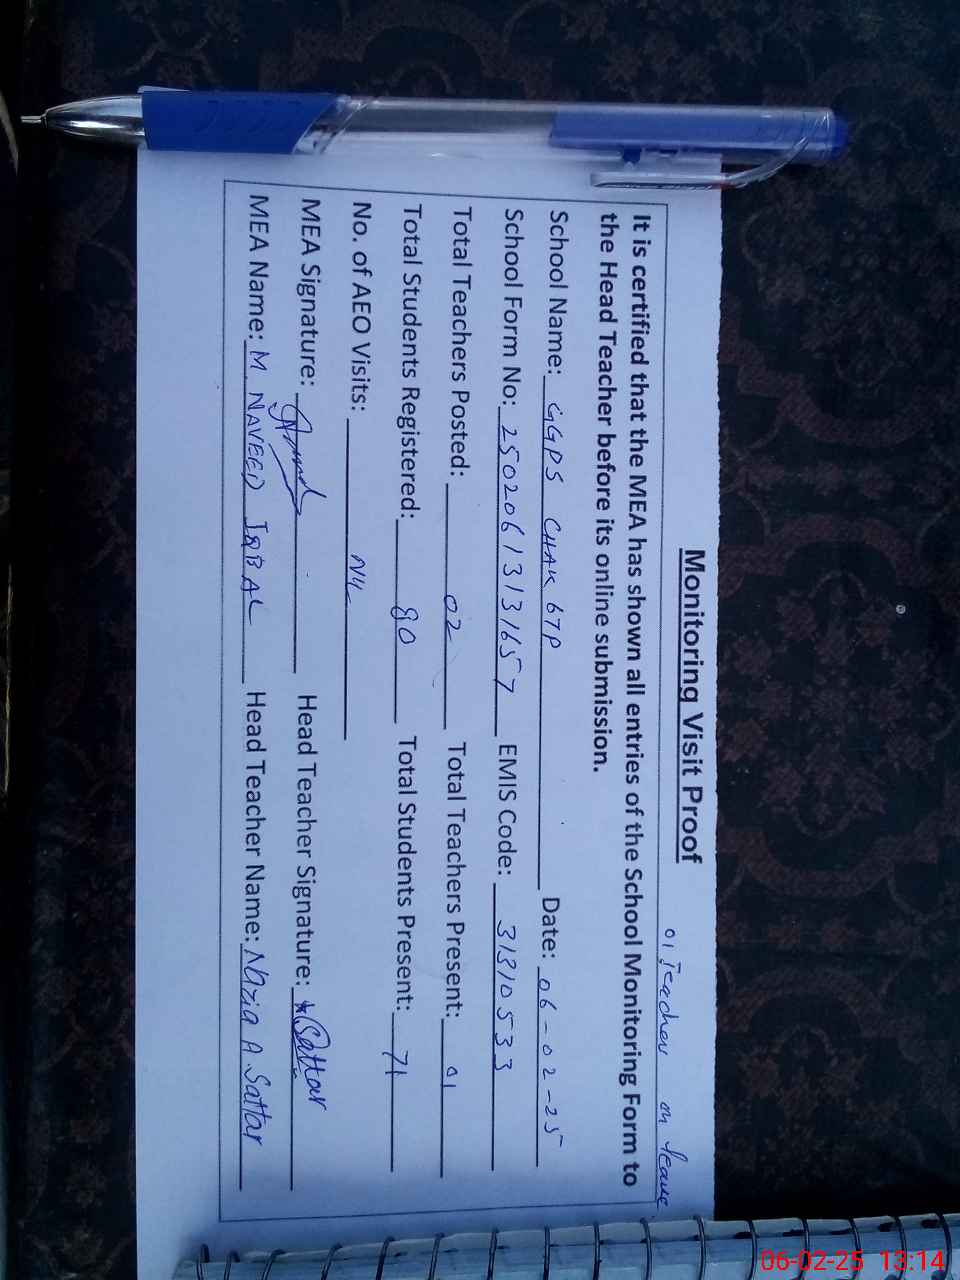 Monitoring Visit Proof
01 Teacher on leave
It is certified that the MEA has shown all entries of the School Monitoring Form to
the Head Teacher before its online submission.
School Name: GGPS CHAK 67P Date: 06-02-25
School Form No: 25020613131657 EMIS Code: 31310533
Total Teachers Posted: 02 Total Teachers Present: 01
Total Students Registered: 80 Total Students Present: 71
No. of AEO Visits: NIL
MEA Signature: Head Teacher Signature: Sattar
MEA Name: M. NAVEED IQBAL Head Teacher Name: Nazia A. Sattar
06-02-25 13:14